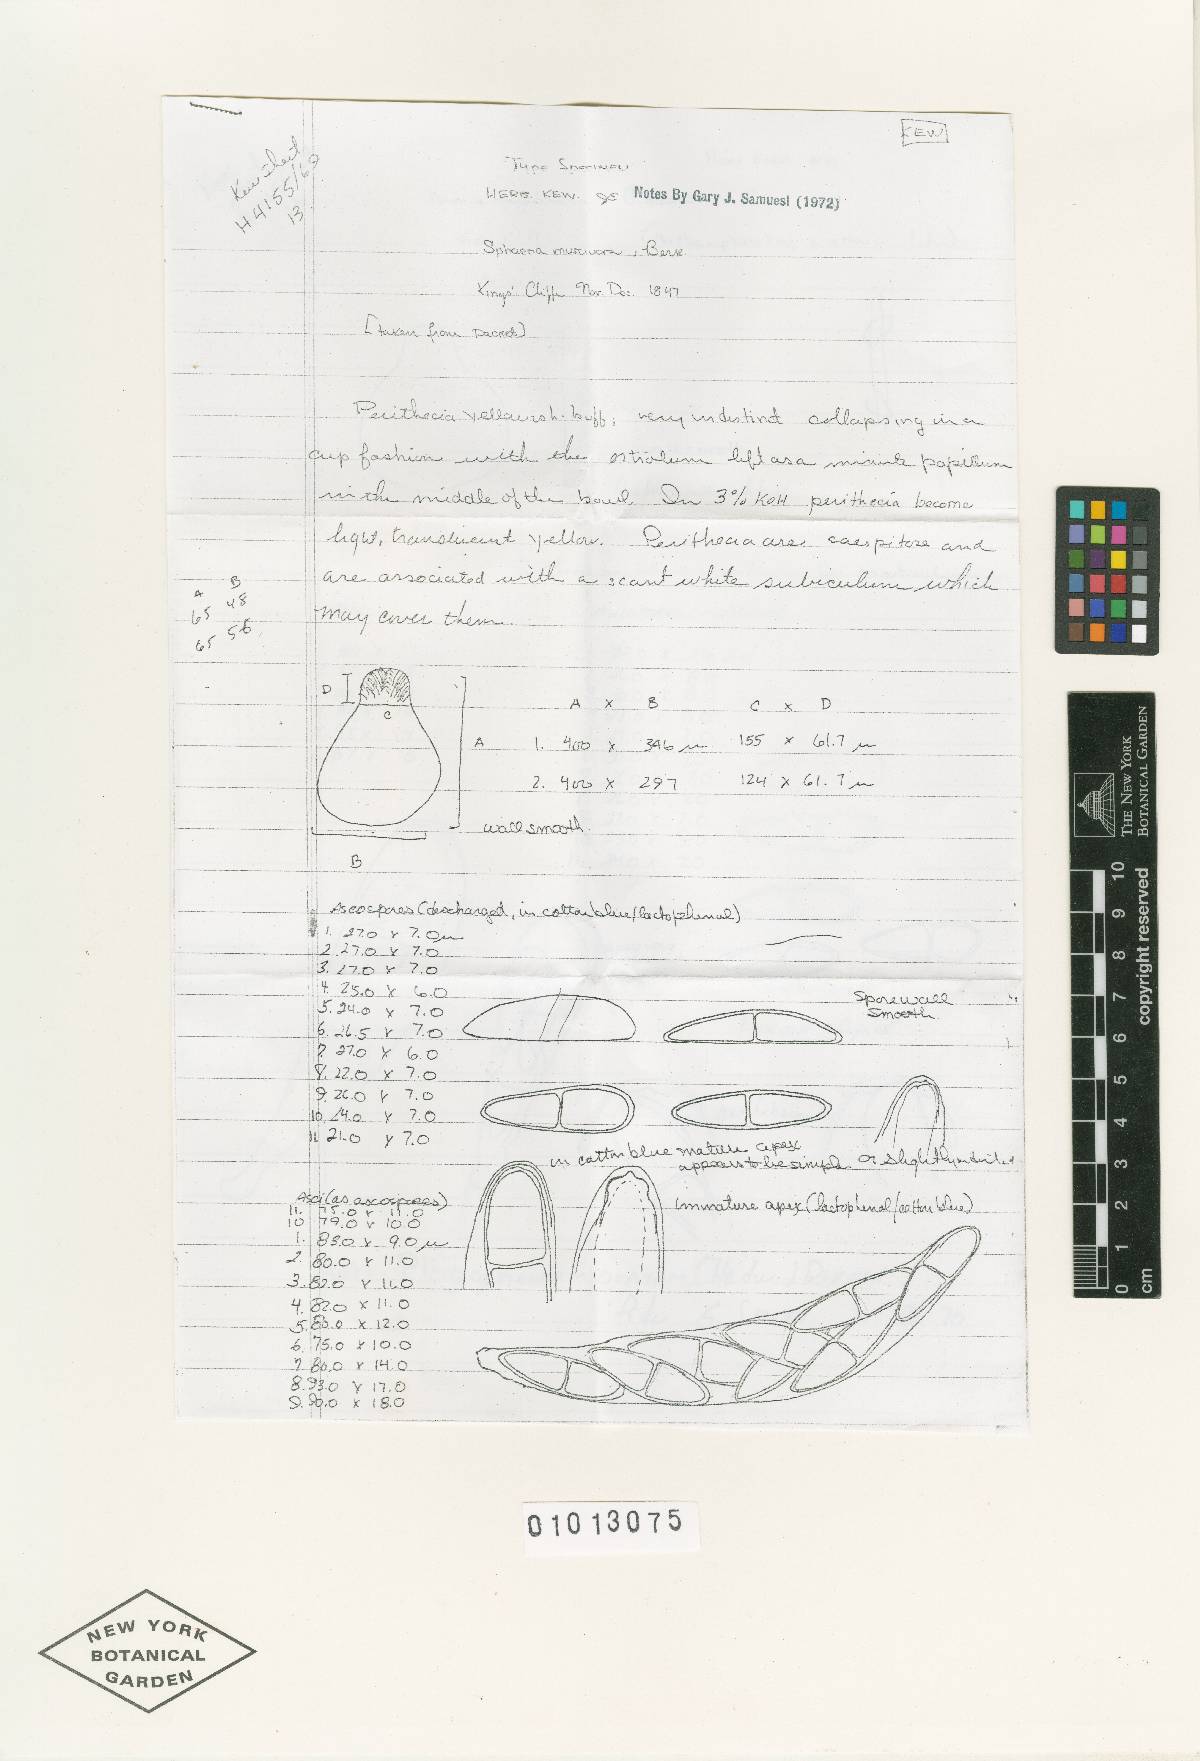 KEW
Kew sheet
H4155/69
13
Type Specimen
HERB. KEW. GS Notes By Gary J. Samuesl (1972)
Sphaeria muscivora, Berk.
Kings' Cliffe Nov. Dec. 1847
[taken from packet]
Perithecia yellowish-buff; very indistinct collapsing in a
cup fashion with the ostiolum left as a minute papillum
in the middle of the bowl. In 3% KOH perithecia become
light, translucent yellow. Perithecia are caespitose and
are associated with a scant white subiculum which
may cover them.
A B
65 48
65 56
D
C
A
B
A x B C x D
1. 400 x 346 µ 155 x 61.7 µ
2. 400 x 297 124 x 61.7 µ
wall smooth.
Ascospores (discharged, in cotton blue/lactophenol)
1. 27.0 x 7.0 µ
2. 27.0 x 7.0
3. 27.0 x 7.0
4. 25.0 x 6.0
5. 24.0 x 7.0
6. 26.5 x 7.0
7. 27.0 x 6.0
8. 22.0 x 7.0
9. 26.0 x 7.0
10. 24.0 x 7.0
11. 21.0 x 7.0
Spore wall
smooth.
in cotton blue mature apex
appears to be simple or slightly
immature apex (lactophenol/cotton blue)
Asci (as ascospores)
11. 75.0 x 11.0
10. 79.0 x 10.0
1. 83.0 x 9.0 µ
2. 80.0 x 11.0
3. 82.0 x 11.0
4. 82.0 x 11.0
5. 80.0 x 12.0
6. 75.0 x 10.0
7. 80.0 x 14.0
8. 93.0 x 17.0
9. 90.0 x 18.0
01013075
NEW YORK
BOTANICAL
GARDEN
THE NEW YORK
BOTANICAL GARDEN
copyright reserved
0 1 2 3 4 5 6 7 8 9 10
cm